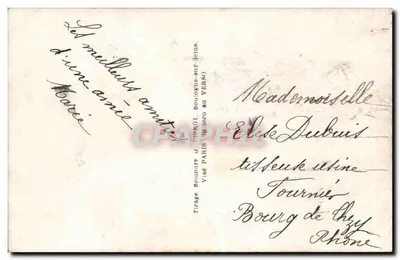 Les meilleurs amitiés
d'une amie
Marie
Tirage Bromure
Boulogne-sur-Seine.
Visé PARIS numéro au VERSO
Mademoiselle
Elise Dubuis
tisseuse usine
Tournier
Bourg de Thizy
Rhône